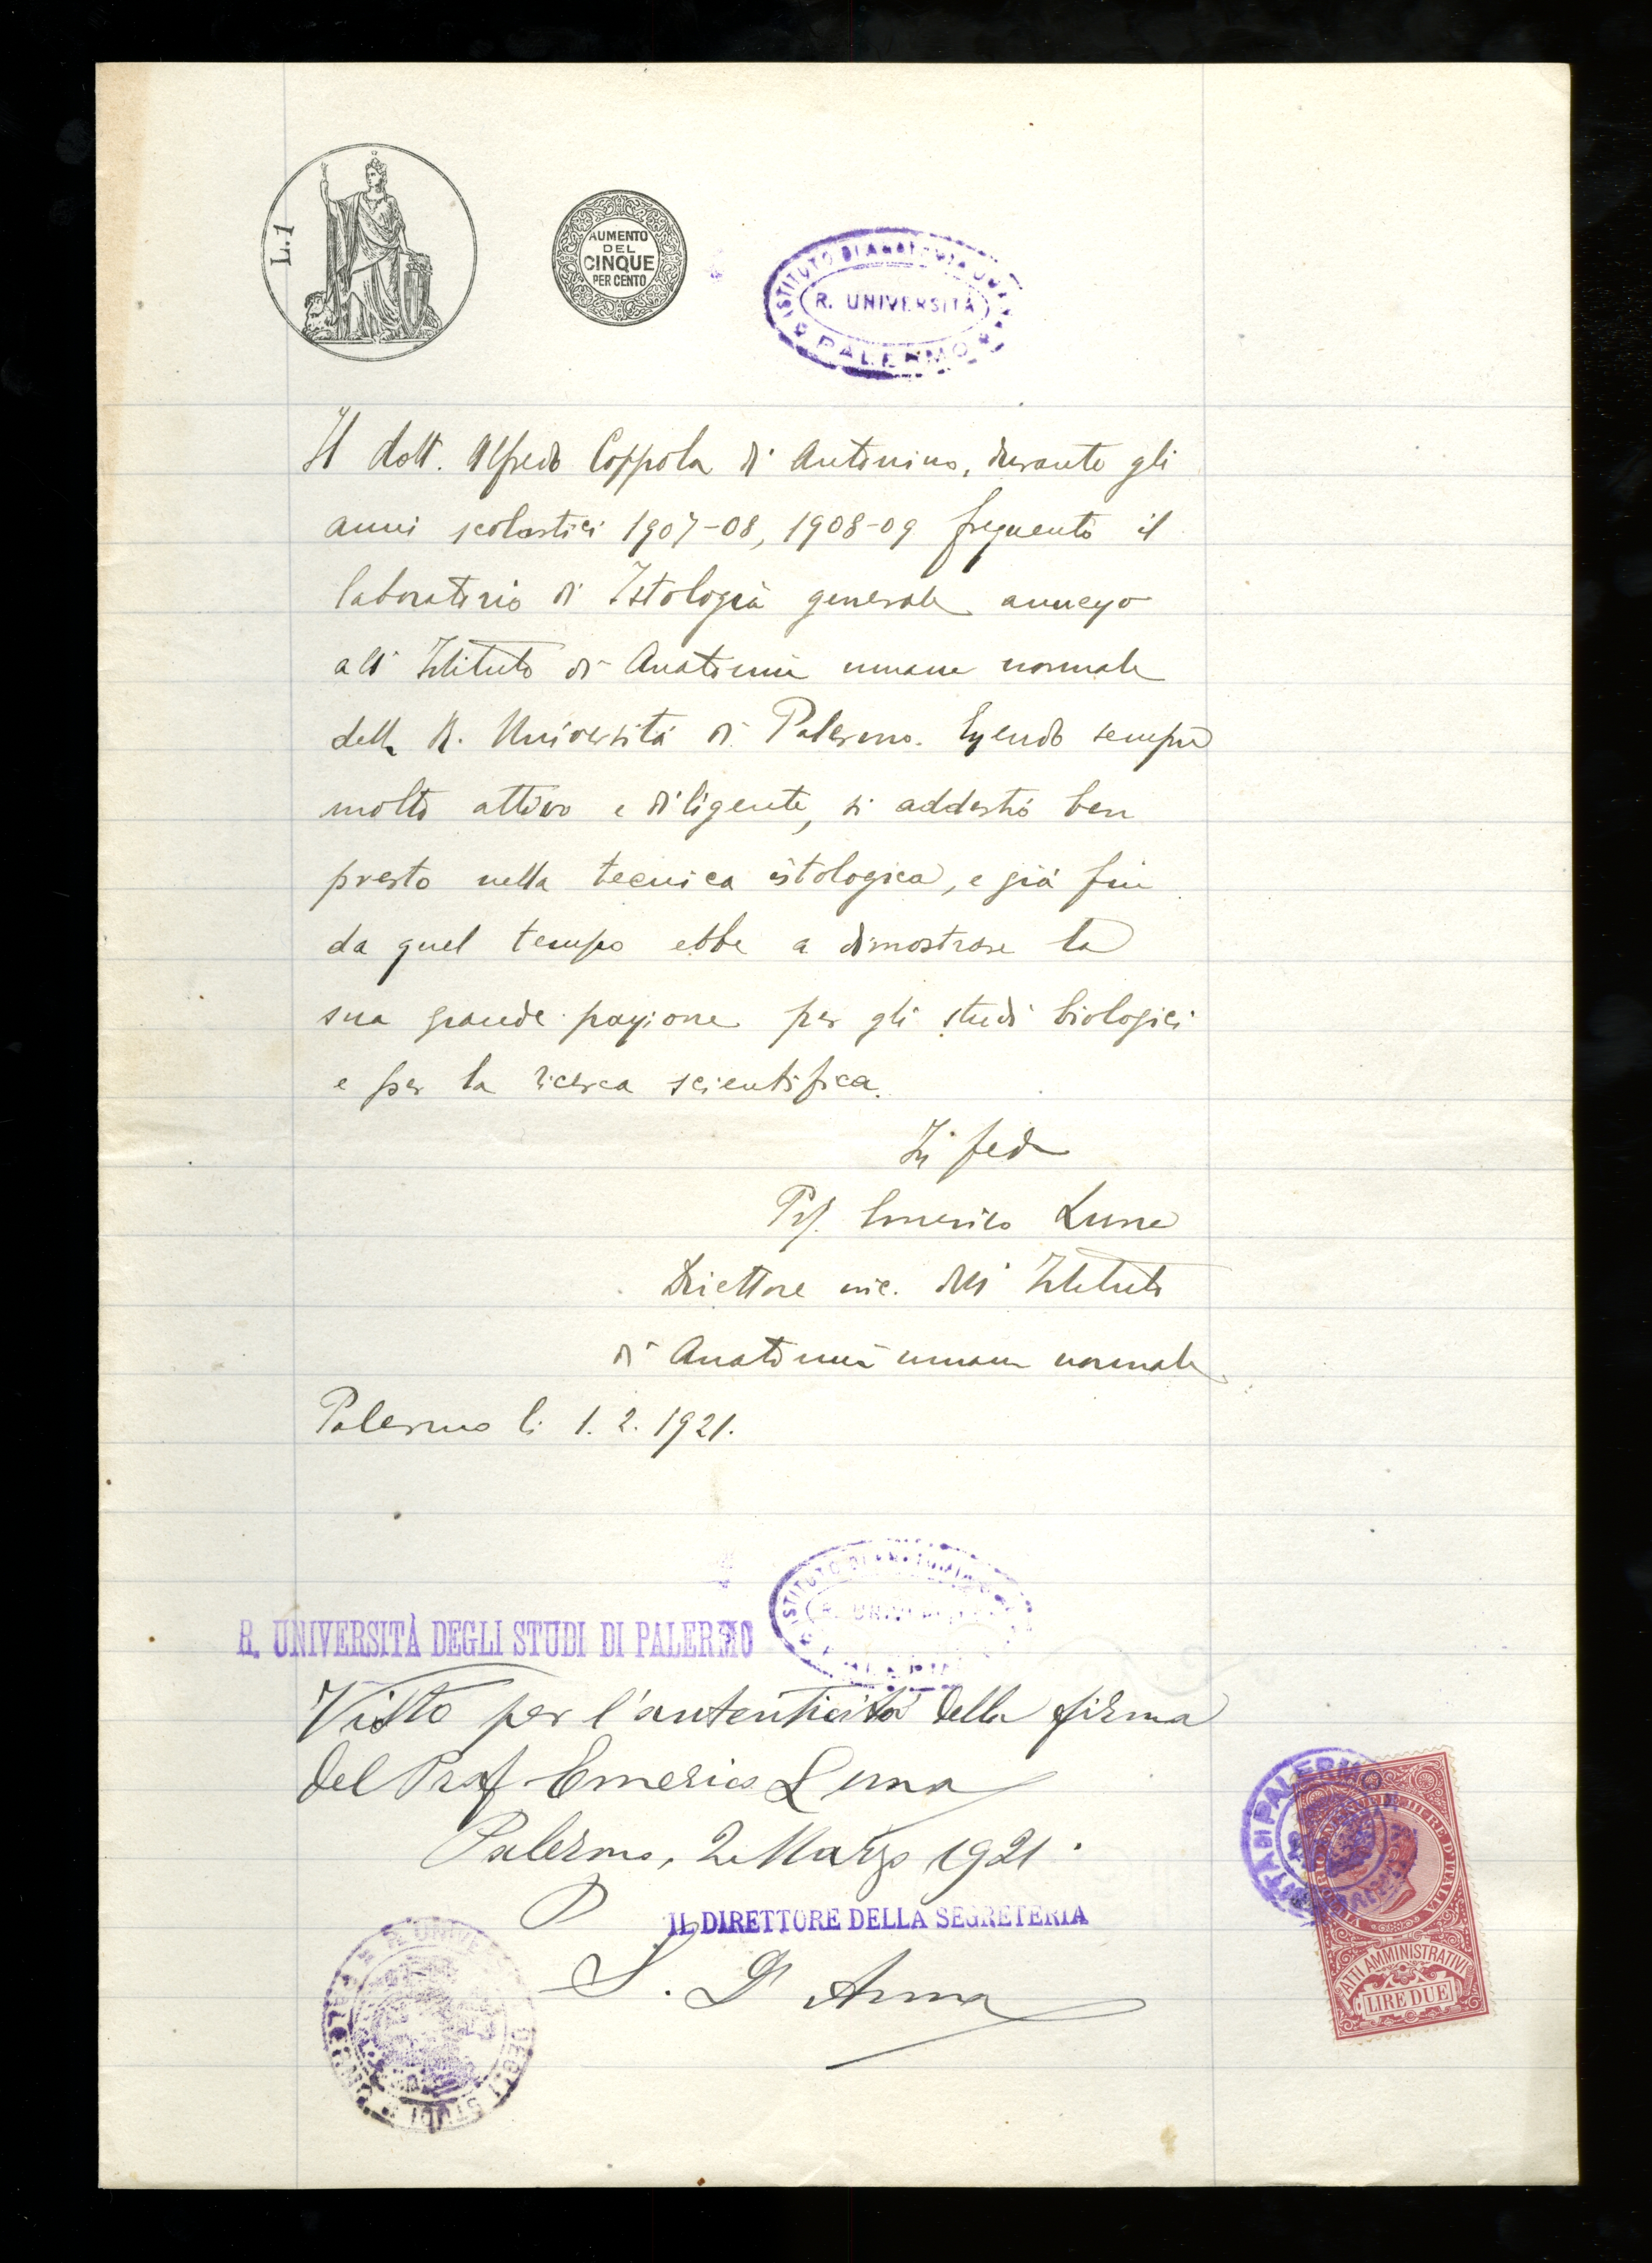 L.1
AUMENTO
DEL
CINQUE
PER CENTO
ISTITUTO DI ANATOMIA
R. UNIVERSITÀ
PALERMO
Il dott. Alfredo Coppola di Antonino, durante gli
anni scolastici 1907-08, 1908-09 frequentò il
laboratorio di Istologia generale annesso
all'Istituto di Anatomia umana normale
della R. Università di Palermo. Essendo sempre
molto attivo e diligente, si addestrò ben
presto nella tecnica istologica, e già fin
da quel tempo ebbe a dimostrare la
sua grande passione per gli studi biologici
e per la ricerca scientifica.
In fede
Prof. Emerico Luna
Direttore inc. dell'Istituto
di Anatomia umana normale
Palermo li 1. 2. 1921.
ISTITUTO DI ANATOMIA
R. UNIVERSITÀ DEGLI STUDI DI PALERMO
Visto per l'autenticità della firma
del Prof. Emerico Luna
Palermo, 2 Marzo 1921.
IL DIRETTORE DELLA SEGRETERIA
S. D'Anna
R. UNIVERSITÀ DEGLI STUDI
DI PALERMO
III RE D'ITALIA
ATTI AMMINISTRATIVI
LIRE DUE